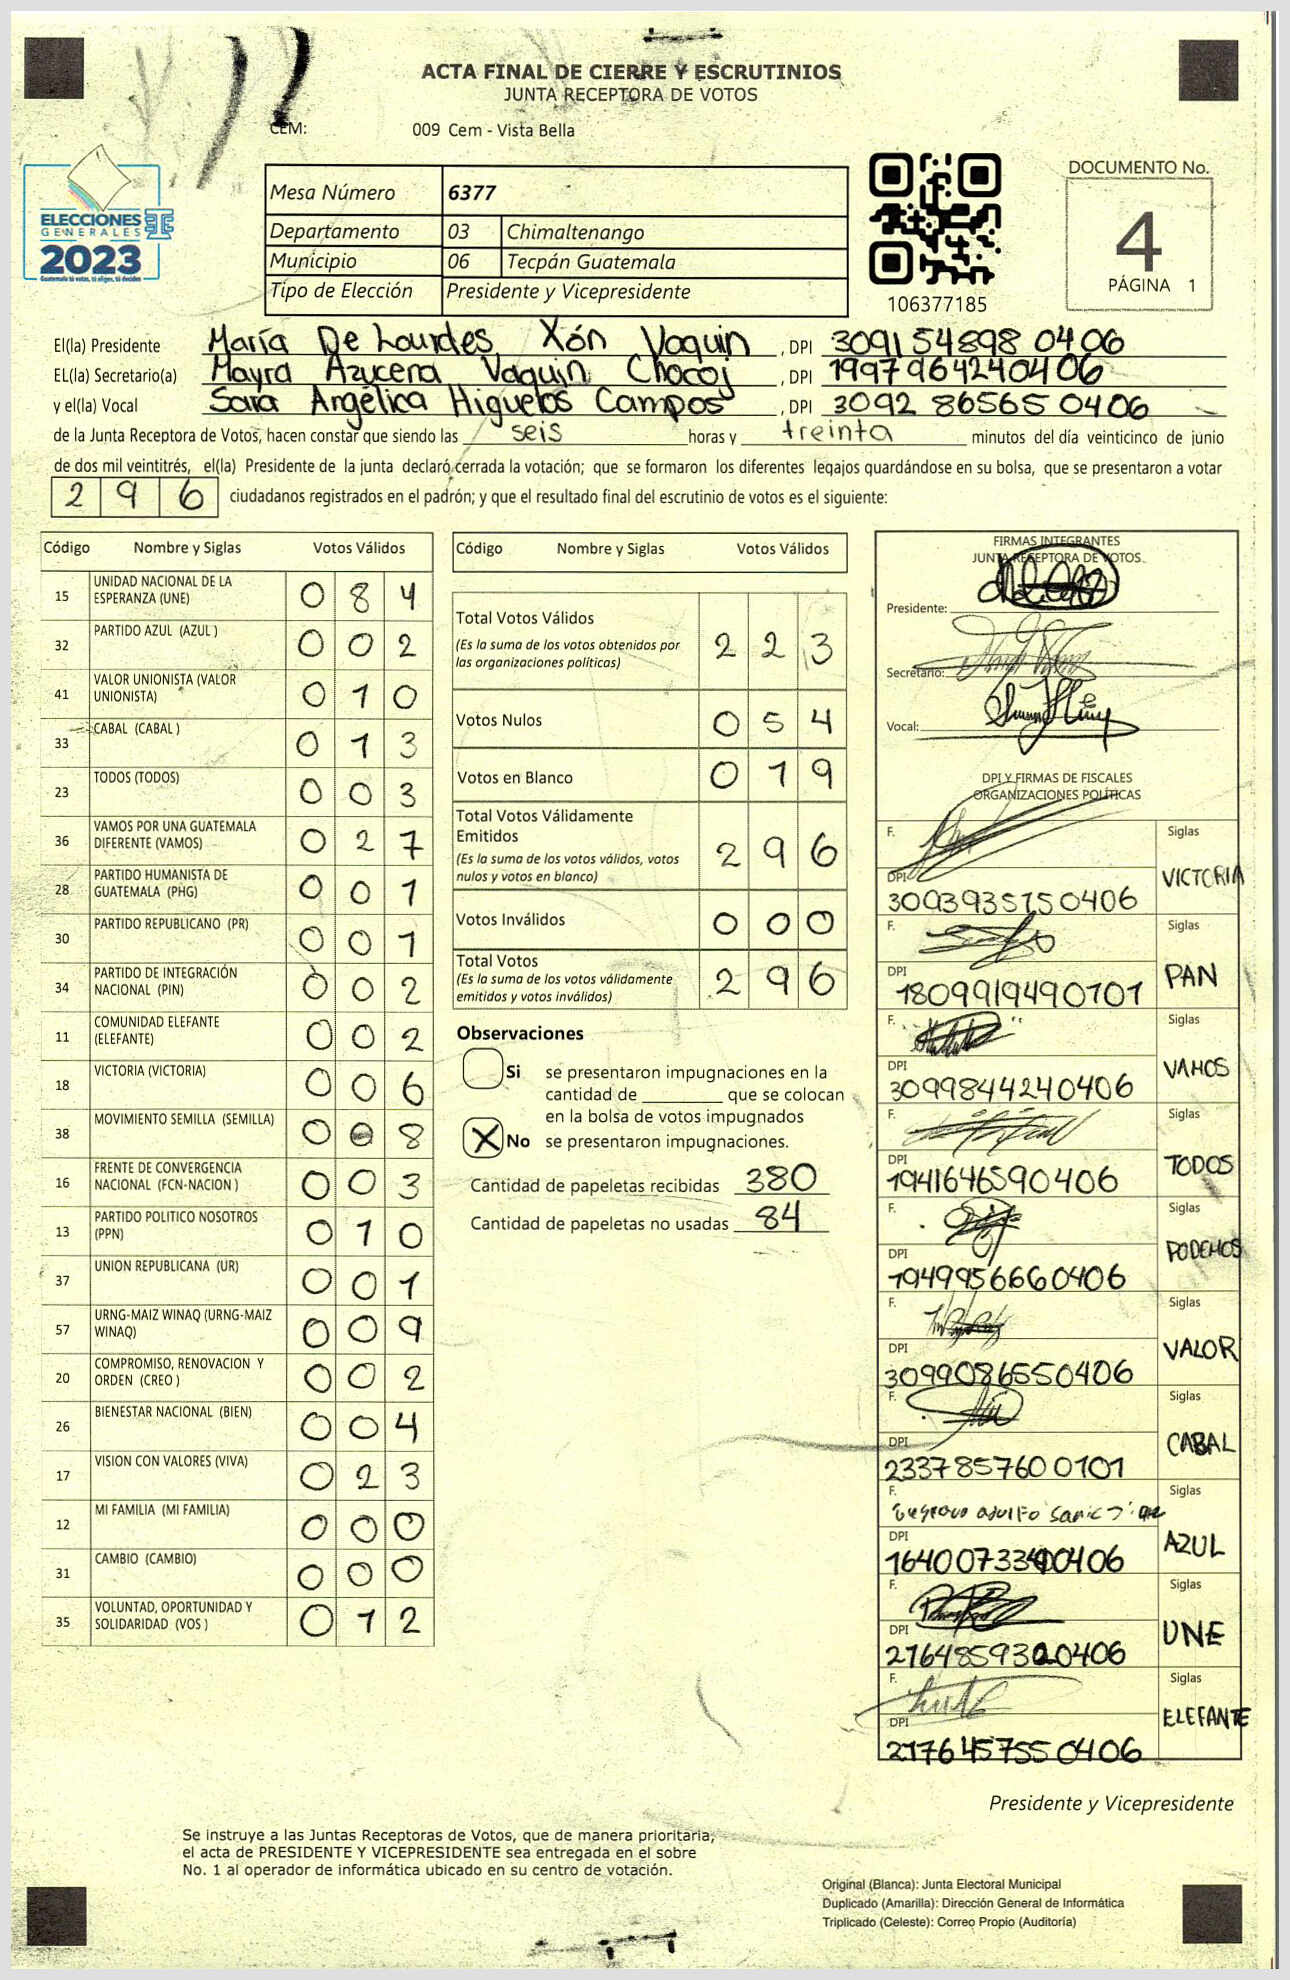 ACTA FINAL DE CIERRE Y ESCRUTINIOS
JUNTA RECEPTORA DE VOTOS
CEM: 009 Cem - Vista Bella
ELECCIONES
GENERALES
2023
Guatemala tú votas, tú eliges, tú decides
Mesa Número 6377
Departamento 03 Chimaltenango
Municipio 06 Tecpán Guatemala
Tipo de Elección Presidente y Vicepresidente
106377185
DOCUMENTO No.
4
PÁGINA 1
El(la) Presidente María De Lourdes Xón Vaquin , DPI 309154898 0406
EL(la) Secretario(a) Mayra Azucena Vaquin Chocoj , DPI 1997964240406
y el(la) Vocal Sara Angélica Higuelos Campos , DPI 3092 86565 0406
de la Junta Receptora de Votos, hacen constar que siendo las seis horas y treinta minutos del día veinticinco de junio
de dos mil veintitrés, el(la) Presidente de la junta declaró cerrada la votación; que se formaron los diferentes legajos guardándose en su bolsa, que se presentaron a votar
296 ciudadanos registrados en el padrón; y que el resultado final del escrutinio de votos es el siguiente:
Código Nombre y Siglas Votos Válidos
15 UNIDAD NACIONAL DE LA ESPERANZA (UNE) 0 8 4
32 PARTIDO AZUL (AZUL ) 0 0 2
41 VALOR UNIONISTA (VALOR UNIONISTA) 0 1 0
33 CABAL (CABAL ) 0 1 3
23 TODOS (TODOS) 0 0 3
36 VAMOS POR UNA GUATEMALA DIFERENTE (VAMOS) 0 2 7
28 PARTIDO HUMANISTA DE GUATEMALA (PHG) 0 0 1
30 PARTIDO REPUBLICANO (PR) 0 0 1
34 PARTIDO DE INTEGRACIÓN NACIONAL (PIN) 0 0 2
11 COMUNIDAD ELEFANTE (ELEFANTE) 0 0 2
18 VICTORIA (VICTORIA) 0 0 6
38 MOVIMIENTO SEMILLA (SEMILLA) 0 0 8
16 FRENTE DE CONVERGENCIA NACIONAL (FCN-NACION ) 0 0 3
13 PARTIDO POLITICO NOSOTROS (PPN) 0 1 0
37 UNION REPUBLICANA (UR) 0 0 1
57 URNG-MAIZ WINAQ (URNG-MAIZ WINAQ) 0 0 9
20 COMPROMISO, RENOVACION Y ORDEN (CREO ) 0 0 2
26 BIENESTAR NACIONAL (BIEN) 0 0 4
17 VISION CON VALORES (VIVA) 0 2 3
12 MI FAMILIA (MI FAMILIA) 0 0 0
31 CAMBIO (CAMBIO) 0 0 0
35 VOLUNTAD, OPORTUNIDAD Y SOLIDARIDAD (VOS ) 0 1 2
Código Nombre y Siglas Votos Válidos
Total Votos Válidos 2 2 3
(Es la suma de los votos obtenidos por
las organizaciones políticas)
Votos Nulos 0 5 4
Votos en Blanco 0 1 9
Total Votos Válidamente
Emitidos 2 9 6
(Es la suma de los votos válidos, votos
nulos y votos en blanco)
Votos Inválidos 0 0 0
Total Votos 2 9 6
(Es la suma de los votos válidamente
emitidos y votos inválidos)
Observaciones
Si se presentaron impugnaciones en la
cantidad de ________ que se colocan
en la bolsa de votos impugnados
X No se presentaron impugnaciones.
Cantidad de papeletas recibidas 380
Cantidad de papeletas no usadas 84
FIRMAS INTEGRANTES
JUNTA RECEPTORA DE VOTOS
Presidente:
Secretario:
Vocal:
DPI Y FIRMAS DE FISCALES
ORGANIZACIONES POLÍTICAS
F. Siglas
DPI VICTORIA
3093935750406
F. Siglas
DPI PAN
1809919490101
F. Siglas
DPI VAMOS
3099844240406
F. Siglas
DPI TODOS
1941646590406
F. Siglas
DPI PODEMOS
1949956660406
F. Siglas
DPI VALOR
3099086550406
F. Siglas
DPI CABAL
2337857600101
F. Siglas
DPI AZUL
F. Siglas
DPI UNE
F. Siglas
DPI ELEFANTE
2176457550406
Presidente y Vicepresidente
Se instruye a las Juntas Receptoras de Votos, que de manera prioritaria,
el acta de PRESIDENTE Y VICEPRESIDENTE sea entregada en el sobre
No. 1 al operador de informática ubicado en su centro de votación.
Original (Blanca): Junta Electoral Municipal
Duplicado (Amarilla): Dirección General de Informática
Triplicado (Celeste): Correo Propio (Auditoría)